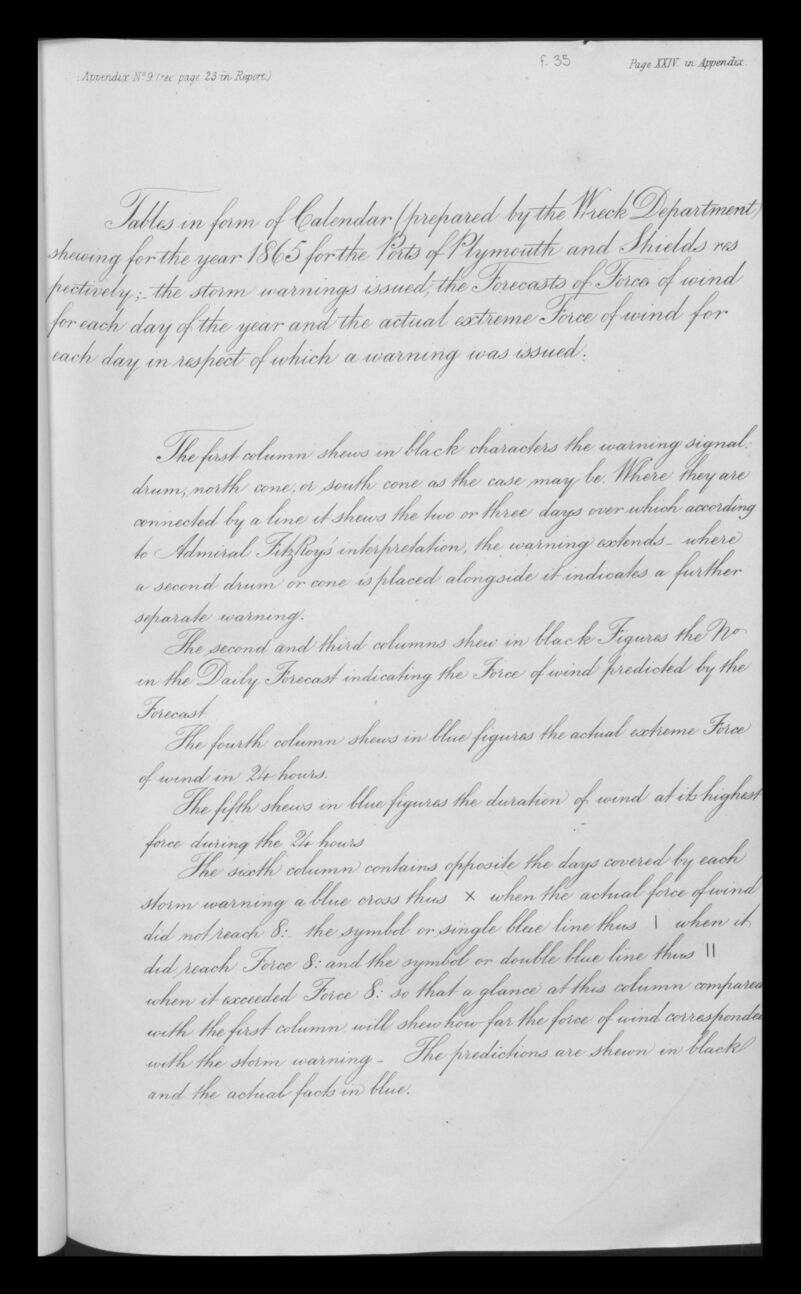 f. 35
Page XXIV. in Appendix.
Appendix No 9. (see page 23 in Report.)
Tables in form of Calendar (prepared by the Wreck Department)
shewing for the year 1865 for the Ports of Plymouth and Shields res
pectively;- the storm warnings issued, the Forecasts of Force of wind
for each day of the year and the actual extreme Force of wind for
each day in respect of which a warning was issued.
The first column shews in black characters the warning signal:
drum, north cone, or south cone as the case may be. Where they are
connected by a line it shews the two or three days over which according
to Admiral FitzRoy's interpretation, the warning extends - where
a second drum or cone is placed alongside it indicates a further
separate warning.
The second and third columns shew in black Figures the No
in the Daily Forecast indicating the Force of wind predicted by the
Forecast
The fourth column shews in blue figures the actual extreme Force
of wind in 24 hours.
The fifth shews in blue figures the duration of wind at its highest
force during the 24 hours
The sixth column contains opposite the days covered by each
storm warning a blue cross thus × when the actual force of wind
did not reach 8:- the symbol or single blue line thus | when it
did reach Force 8: and the symbol or double blue line thus ||
when it exceeded Force 8: so that a glance at this column compared
with the first column will shew how far the force of wind corresponded
with the storm warning - The predictions are shewn in black
and the actual facts in blue.